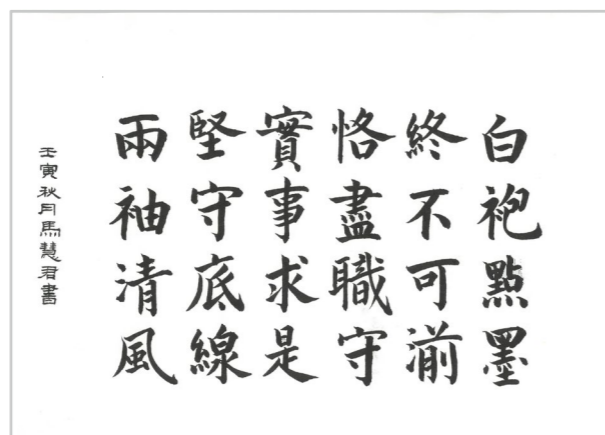 白袍點墨
終不可湔
恪盡職守
實事求是
堅守底線
兩袖清風
壬寅秋月馬慧君書